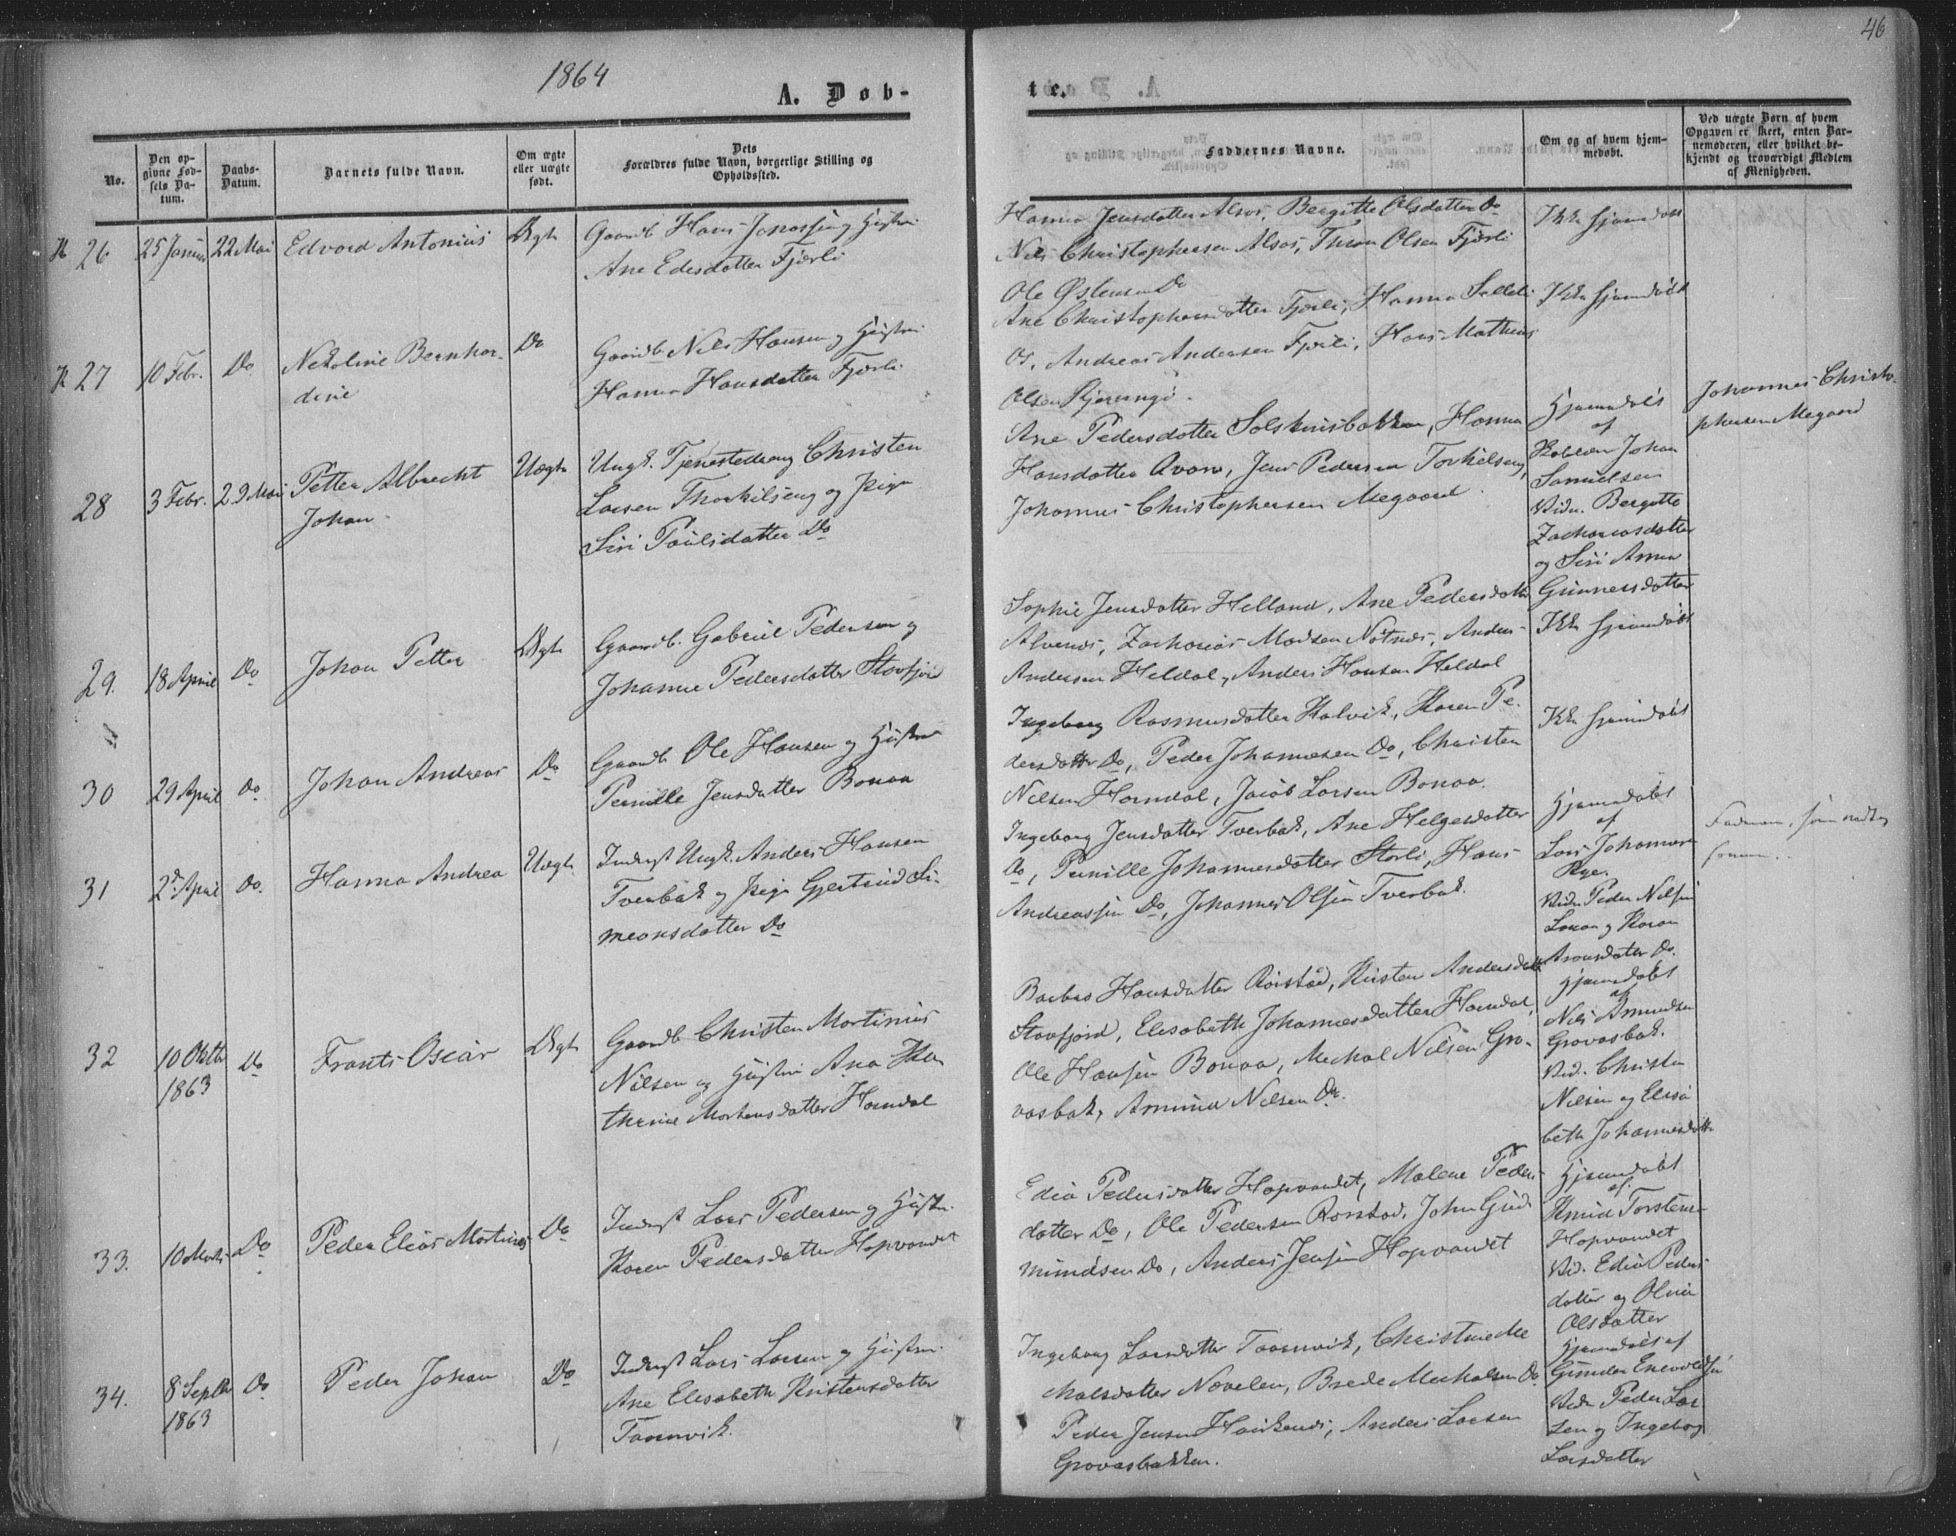 46
1864
A. Døb-
te.
No.
Den op-
givne Fød-
sels Da-
tum.
Daabs-
Datum.
Barnets fulde Navn.
Om ægte
eller uægte
født.
Dets
Forældres fulde Navn, borgerlige Stilling og
Opholdssted.
Faddernes Navne.
Om og af hvem hjem-
medøbt.
Ved uægte Børn af hvem
Opgaven er skeet, enten Bar-
nemoderen, eller hvilket be-
kjendt og troværdigt Medlem
af Menigheden.
26
22 Mai
Edvard Antonius
Ægte
Gaardb. Hans Jonassen og Hustru
Ane Edisdatter Fjærli
Hanna Jensdatter Alsos, Bergitte Olsdatter Do
Nils Christophersen Alsos, Thron Olsen Fjærli
Ole Østensen Do
Ikke hjemdøbt
27
10 Febr.
Do
Nekoline Bernhar-
dine
Do
Gaardb. Nils Hansen og Hustru
Hanna Hansdatter Fjærli
Ane Christophersdatter Fjærli, Hanna
Andreas Andersen Fjærli, Hans Mathias
Olsen Kjerringø.
Ikke hjemdøbt
28
3 Febr.
29 Mai
Petter Albrecht
Johan.
Uægte
Ungk. Tjenestedreng Christen
Larsen Thorkilseng og Pige
Siri Paulsdatter Do
Ane Pedersdatter Solskinsbakken, Hanna
Hansdatter Qvarv, Jens Pedersen Torkilseng,
Johannes Christophersen Megaard.
Hjemdøbt
af
Johan
Samuelsen
Vidn. Bergitte
Zachariasdatter
og Siri Anna
Gunnersdatter
Johannes Christo-
phersen Megaard
29.
18 April
Do
Johan Petter
Ægte
Gaardb. Gabriel Pedersen og
Johanne Pedersdatter Storfjord
Sophie Jensdatter Helland, Ane Pedersdatter
Alvenes, Zacharias Madsen Nøtnes, Anders
Andersen Heldal, Anders Hansen Heldal
Ikke hjemdøbt
30
29 April
Do
Johan Andreas
Do
Gaardb. Ole Hansen og Hustru
Pernille Jensdatter Bonaa
Ingeborg Rasmusdatter Kalvik, Karen Pe-
dersdatter Do, Peder Johannesen Do, Christen
Nilsen Horndal, Jacob Larsen Bonaa.
Ikke hjemdøbt
31
2 April
Do.
Hanna Andrea
Uægte
Inderst Ungk. Anders Hansen
Tverbak og Pige Gjertrud Si-
meonsdatter Do
Ingeborg Jensdatter Tverbak, Ane Helgesdatter
Do, Pernille Johannesdatter Storli, Hans
Andreassen Do, Johannes Olsen Tverbak.
Hjemdøbt
af
Lars Johannes
Vidn. Peder Nilsen
og Karen
Aronsdatter Do.
Faderen, som
32
10 Oktbr
1863
Do
Frants Oscar
Ægte
Gaardb. Christen Martinus
Nilsen og Hustru Ana Ka-
thrine Mortensdatter Horndal
Barbro Hansdatter Rørstad, Kristen Andersdatter
Storfjord, Elisabeth Johannesdatter Horndal,
Ole Hansen Bonaa, Mechal Nilsen Gro-
vasbak, Amund Nilsen Do.
Hjemdøbt
af
Nils Amundsen
Grovasbak.
Vid. Christen
Nilsen og Elisa-
beth Johannesdatter
33.
10 Marts
Do
Peder Elias Martinus
Do
Inderst Lars Pedersen og Hustru
Karen Pedersdatter Hopvandet
Edia Pedersdatter Hopvandet, Malene Peders-
datter Do, Ole Pedersen Rørstad, John Gud-
mundsen Do, Anders Jensen Hopvandet
Hjemdøbt
af
Knud Torstens-
Hopvandet
Vid. Edia Peders-
datter og Olina
Olsdatter
34.
8 Septbr
1863
Do
Peder Johan
Do
Inderst Lars Larsen og Hustru
Ane Elisabeth Kristensdatter
Taarnvik.
Ingeborg Larsdatter Taarnvik, Christine Me-
kalsdatter Nævelen, Brede Mechalsen Do.
Peder Jensen, Anders Larsen
Grovasbakken.
Hjemdøbt af
Gunder Enevoldsen
Vidn. Peder Lar-
sen og Ingeborg
Larsdatter